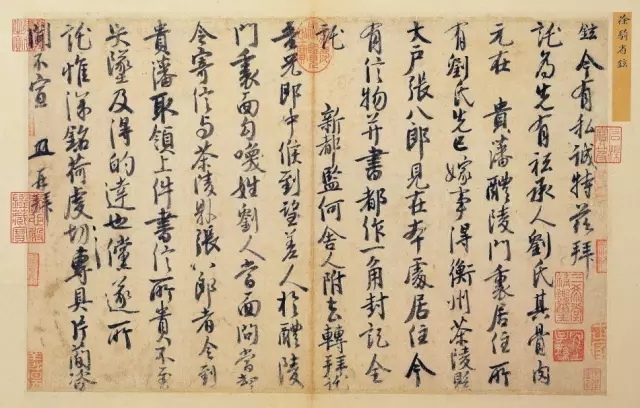 徐騎省鉉
鉉今有私誠特兹拜
託為先有祗承人劉氏其骨肉
元在 貴藩醴陵門裏居住所
有劉氏先已嫁事得衡州茶陵縣
大戶張八郎見在本處居住今
有信物并書都作一角封記全
託 新都監何舍人附去轉拜託
吾兄郎中候到望差人於醴陵
門裏面勾喚姓劉人當面問當却
令寄信与茶陵縣張八郎者令到
貴藩取領上件書信所貴不至
失墜及得的達也儻遂所
託惟深銘荷虔切專具片簡咨
聞不宣 再拜